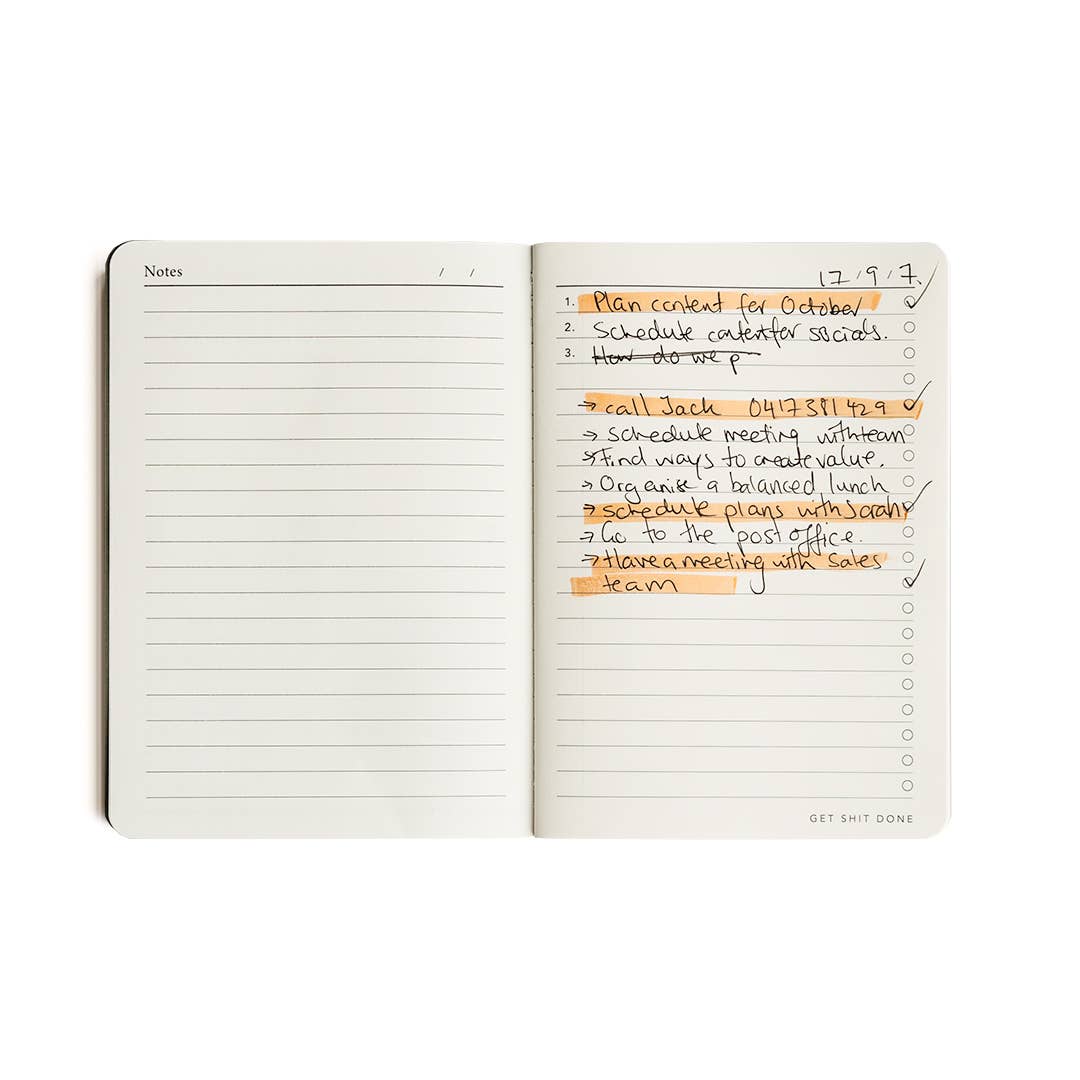 Notes / /
17/9/7.
1. Plan content for October
2. Schedule content for socials.
3. How do we p
→ call Jack 0417 381 429
→ schedule meeting with team
→ Find ways to create value.
→ Organise a balanced lunch
→ schedule plans with Sarah
→ Go to the post office.
→ Have a meeting with sales
team
GET SHIT DONE